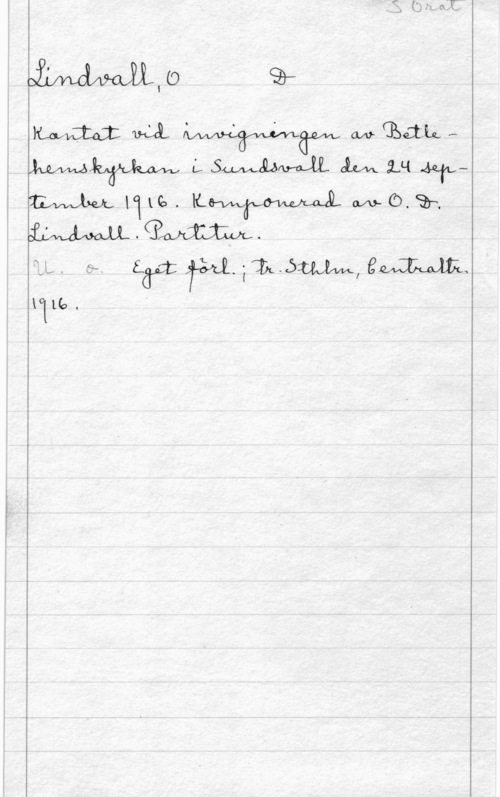 S Orat
Lindvall, O D
Kantat vid invigningen av Betle-
hemskyrkan i Sundsvall den 24 sep-
tember 1916. Komponerad av O. D.
Lindvall. Partitur.
U. o. Eget förl.; tr. Sthlm, Centraltr.
1916.